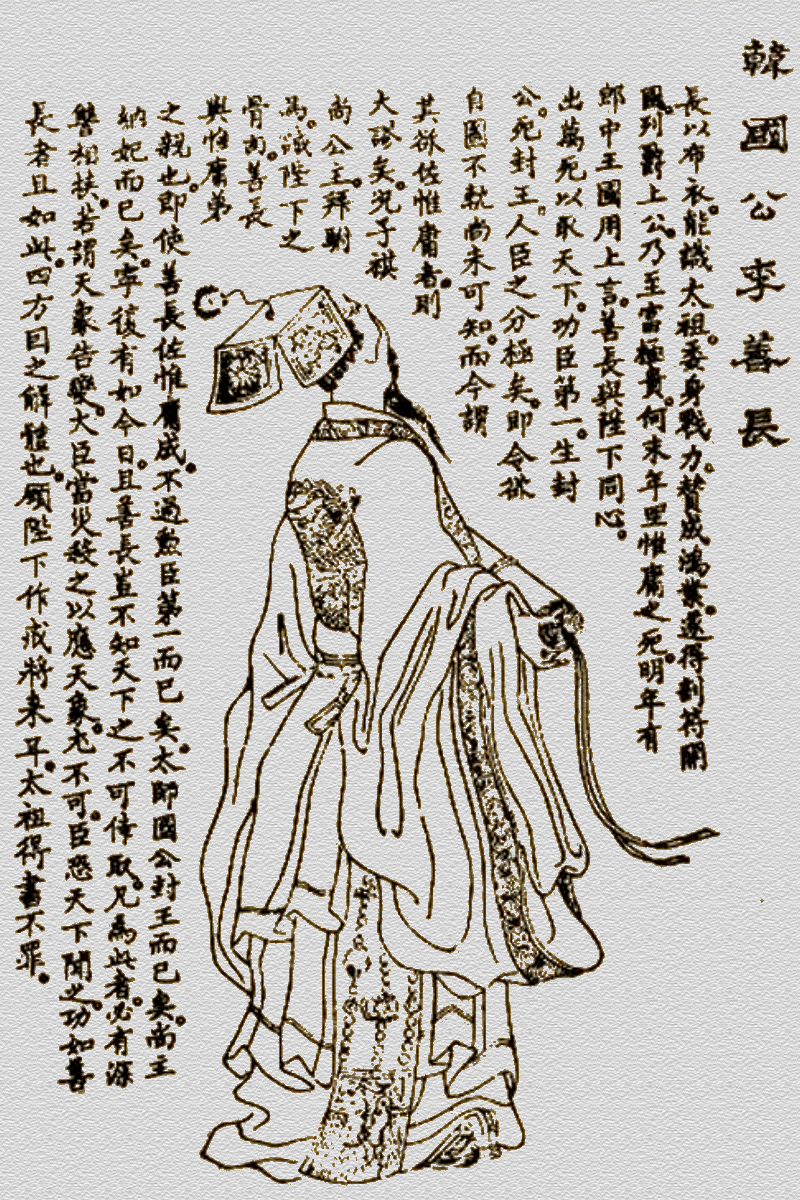 韓國公李善長
長以布衣。能識太祖。委身戮力。贊成鴻業。遂得剖符開
國。列爵上公。乃至富極貴。何末年坐惟庸之死。明年有
郎中王國用上言。善長與陛下同心。
出萬死以取天下。功臣第一。生封
公。死封王。人臣之分極矣。即令欲
自圖不軌。尚未可知。而今謂
其欲佐惟庸者。則
大謬矣。況子祺
尚公主。拜駙
馬。誠陛下之
骨肉。善長
與惟庸第
之親也。即使善長佐惟庸成。不過勲臣第一而已矣。太師國公封王而已矣。尚主
納妃而已矣。寧復有如今日。且善長豈不知天下之不可倖取。凡為此者。必有深
讐相挾。若謂天象告變。大臣當災。殺之以應天象。尤不可。臣恐天下聞之。功如善
長者且如此。四方因之解體也。願陛下作戒將來耳。太祖得書不罪。